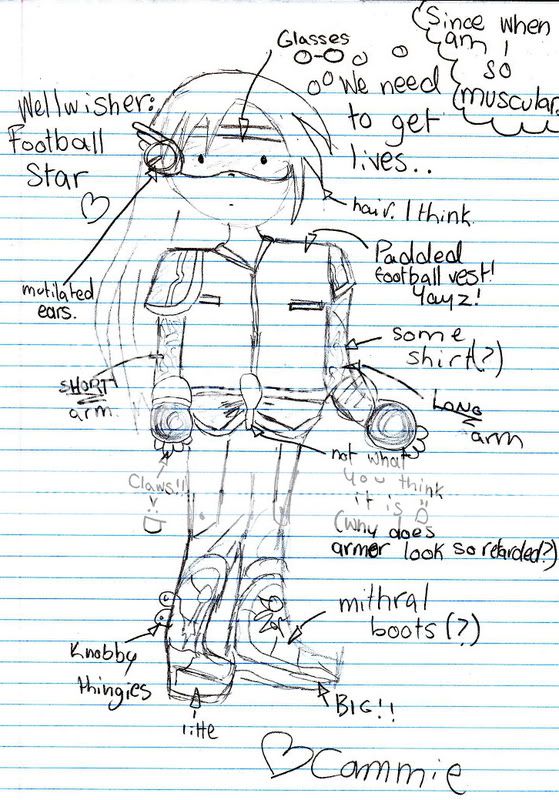 Since when
am I
so
muscular.
Glasses
We need
to get
lives..
Wellwisher:
Football
Star
hair. I think.
Padded
football vest!
Yayz!
mutilated
ears.
some
shirt(?)
SHORT
arm.
LONG
arm
Claws!!
:D
not what
you think
it is :D
(why does
armor look so retarded?)
mithral
boots(?)
Knobby
thingies
little
BIG!!
Cammie